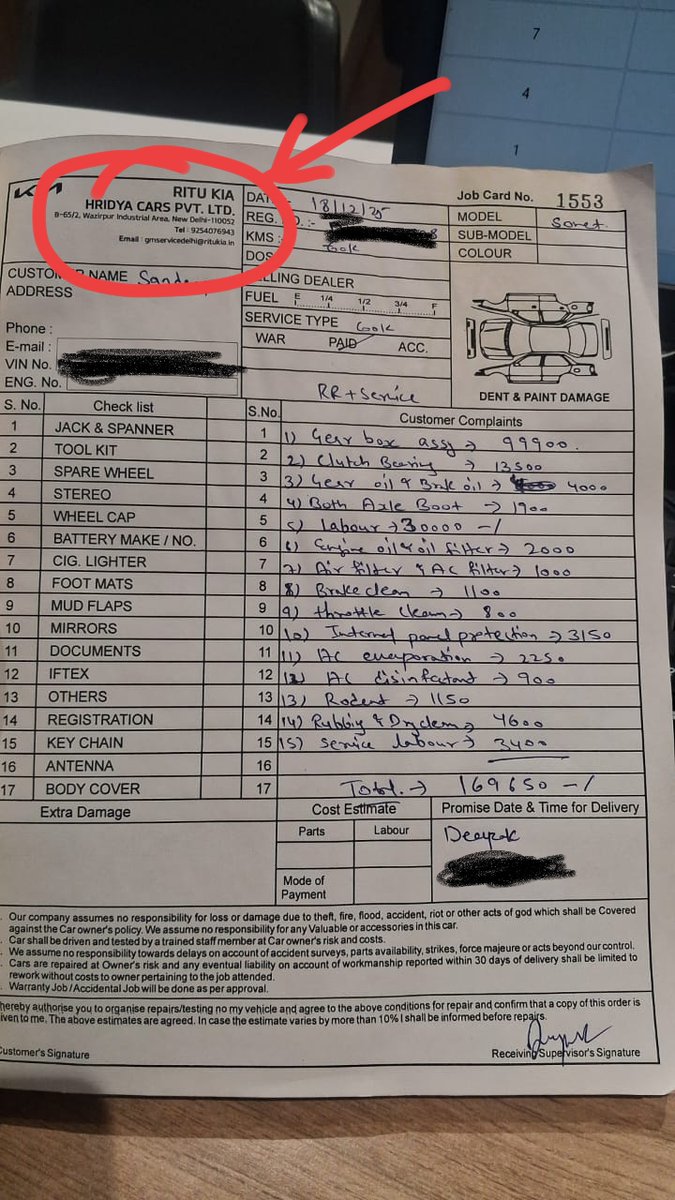 7
4
1
KIA
RITU KIA
HRIDYA CARS PVT. LTD.
B-65/2, Wazirpur Industrial Area, New Delhi-110052
Tel : 9254076943
Email : gmservicedelhi@ritukia.in
DATE 18/12/25
REG. NO. :-
KMS : 60k
DOS
Job Card No. 1553
MODEL Sonet
SUB-MODEL
COLOUR
CUSTOMER NAME
ADDRESS
Phone :
E-mail :
VIN No.
ENG. No.
SELLING DEALER
FUEL E 1/4 1/2 3/4 F
SERVICE TYPE 60k
WAR PAID ACC.
RR + Service
DENT & PAINT DAMAGE
S. No. Check list
1 JACK & SPANNER
2 TOOL KIT
3 SPARE WHEEL
4 STEREO
5 WHEEL CAP
6 BATTERY MAKE / NO.
7 CIG. LIGHTER
8 FOOT MATS
9 MUD FLAPS
10 MIRRORS
11 DOCUMENTS
12 IFTEX
13 OTHERS
14 REGISTRATION
15 KEY CHAIN
16 ANTENNA
17 BODY COVER
S.No. Customer Complaints
1 1) Gear box assy → 99900.
2 2) Clutch Bearing → 13500
3 3) Gear oil & Brak oil → 4000
4 4) Both Axle Boot → 1900
5 5) labour → 30000 -/
6 6) Engine oil & oil filter → 2000
7 7) Air filter & AC filter → 1000
8 8) Brake clean → 1100
9 9) throttle clean → 800
10 10) Internal panel protection → 3150
11 11) AC evaporation → 2250
12 12) AC disinfectant → 900
13 13) Rodent → 1150
14 14) Rubbig & Dryclean → 4600
15 15) Service labour → 3400
16
17 Total. → 169650 -/
Extra Damage
Cost Estimate
Parts Labour
Mode of
Payment
Promise Date & Time for Delivery
Deepak
. Our company assumes no responsibility for loss or damage due to theft, fire, flood, accident, riot or other acts of god which shall be Covered
against the Car owner's policy. We assume no responsibility for any Valuable or accessories in this car.
. Car shall be driven and tested by a trained staff member at Car owner's risk and costs.
. We assume no responsibility towards delays on account of accident surveys, parts availability, strikes, force majeure or acts beyond our control.
. Cars are repaired at Owner's risk and any eventual liability on account of workmanship reported within 30 days of delivery shall be limited to
rework without costs to owner pertaining to the job attended.
. Warranty Job / Accidental Job will be done as per approval.
hereby authorise you to organise repairs/testing no my vehicle and agree to the above conditions for repair and confirm that a copy of this order is
given to me. The above estimates are agreed. In case the estimate varies by more than 10% I shall be informed before repairs.
Customer's Signature
Receiving Supervisor's Signature